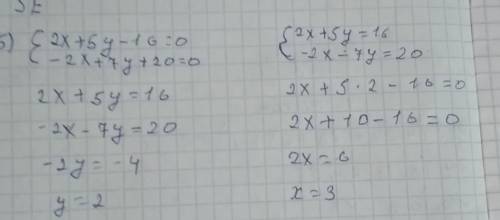 5) {2x+5y-16=0
{-2x+7y+20=0
2x+5y=16
-2x-7y=20
-2y=-4
y=2
{2x+5y=16
{-2x-7y=20
2x+5·2-16=0
2x+10-16=0
2x=6
x=3